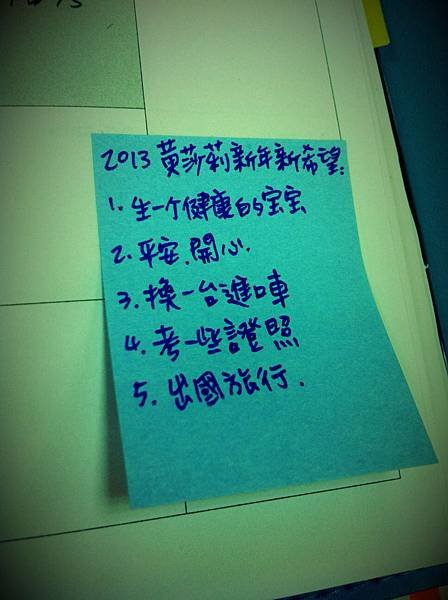 2013 黃莎莉新年新希望:
1. 生一个健康的宝宝
2. 平安.開心.
3. 換一台進口車
4. 考一些證照
5. 出國旅行.